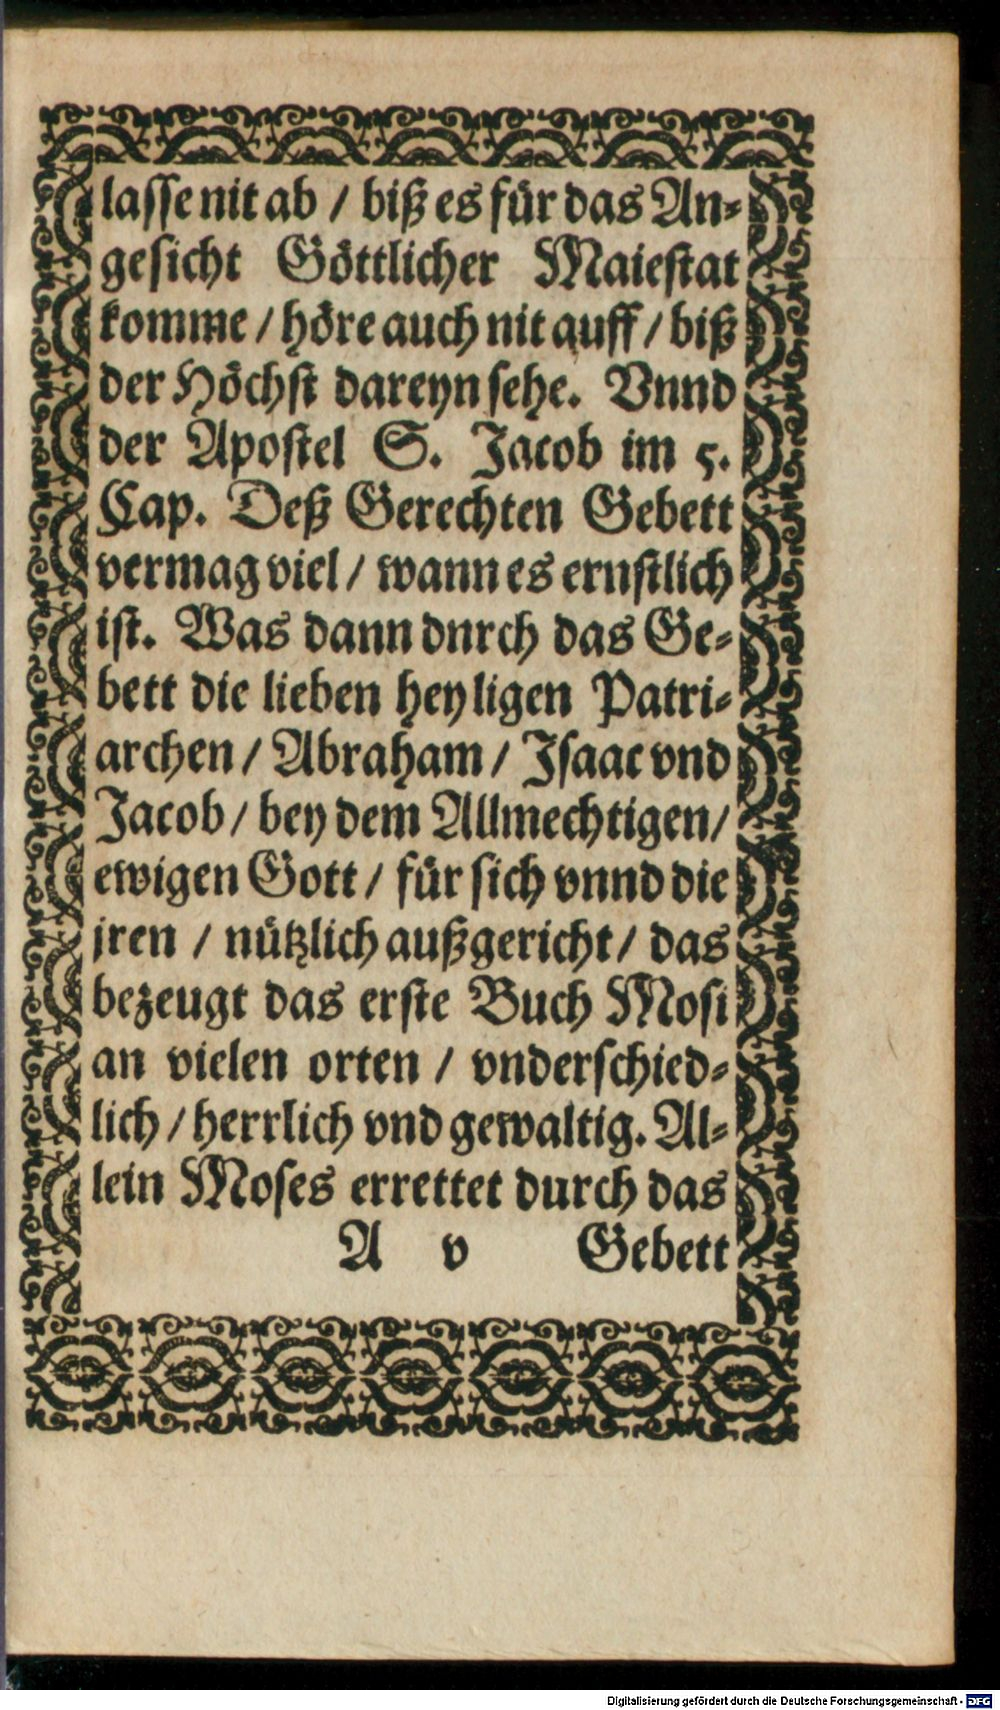 lasse nit ab / biß es für das An-
gesicht Göttlicher Maiestat
komme / höre auch nit auff / biß
der Höchst dareyn sehe. Vnnd
der Apostel S. Jacob im 5.
Cap. Deß Gerechten Gebett
vermag viel / wann es ernstlich
ist. Was dann dnrch das Ge-
bett die lieben heyligen Patri-
archen / Abraham / Isaac vnd
Jacob / bey dem Allmechtigen /
ewigen Gott / für sich vnnd die
jren / nützlich außgericht / das
bezeugt das erste Buch Mosi
an vielen orten / vnderschied-
lich / herrlich vnd gewaltig. Al-
lein Moses errettet durch das
A v Gebett
Digitalisierung gefördert durch die Deutsche Forschungsgemeinschaft - DFG